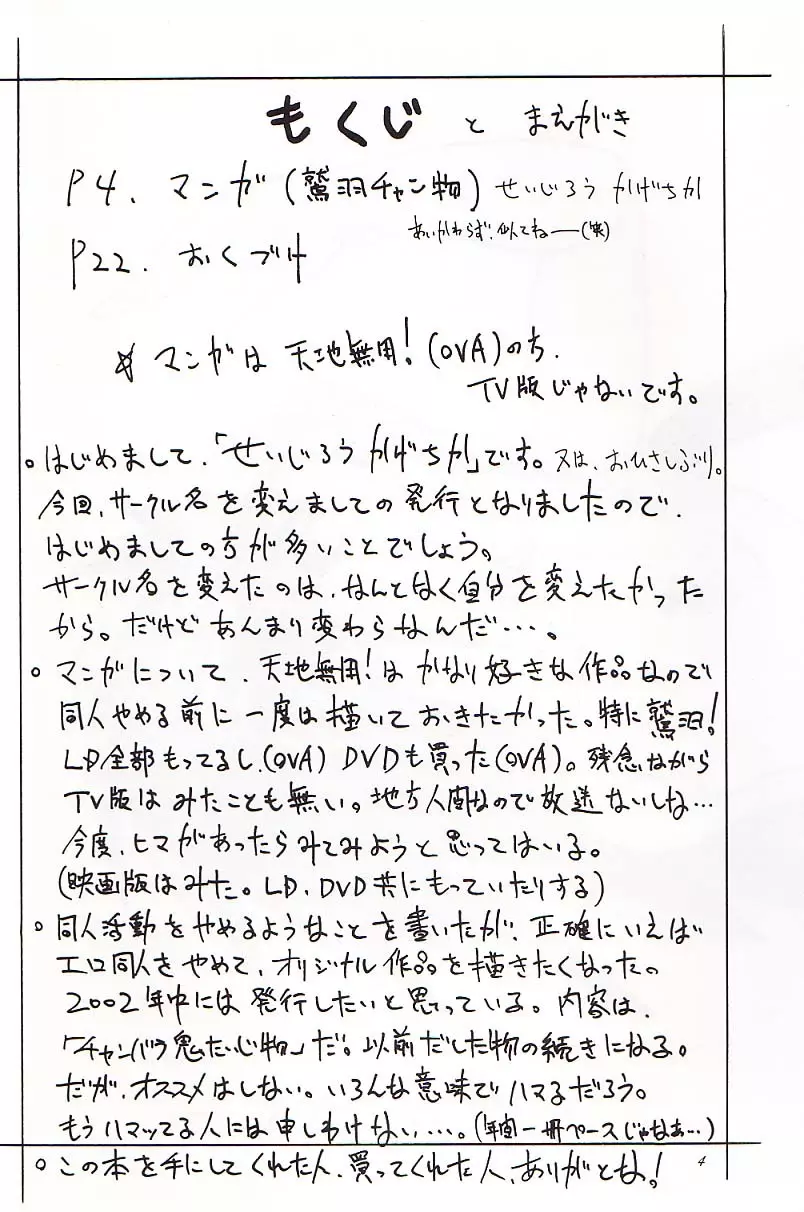 もくじ と まえがき
P4. マンガ(鷲羽チャン物) せいじろう かげちか
あいかわらず、似てねー(笑)
P22. おくづけ
☆ マンガは 天地無用!(OVA)のち.
TV版じゃないです。
。はじめまして、「せいじろう かげちか」です。又は、おひさしぶり。
今回、サークル名を変えましての発行となりましたので、
はじめましての方が多いことでしょう。
サークル名を変えたのは、なんとなく自分を変えたかった
から。だけど あんまり変わらなんだ…。
。マンガについて、天地無用!は かなり好きな作品なので
同人やめる前に一度は描いておきたかった。特に鷲羽!
LD全部もってるし、(OVA) DVDも買った(OVA)。残念ながら
TV版はみたことも無い。地方人間なので放送ないしね…
今度、ヒマがあったらみてみようと思ってはいる。
(映画版はみた。LD、DVD共にもっていたりする)
。同人活動をやめるようなことを書いたが、正確にいえば
エロ同人をやめて、オリジナル作品を描きたくなったの。
2002年中には発行したいと思っている。内容は、
「チャンバラ鬼たいじ物」だ。以前だした物の続きになる。
だが、オススメはしない。いろんな意味でハマるだろう。
もうハマッてる人には申しわけない…。(年間一冊ペースじゃなぁ…)
。この本を手にしてくれた人、買ってくれた人、ありがとな!
4